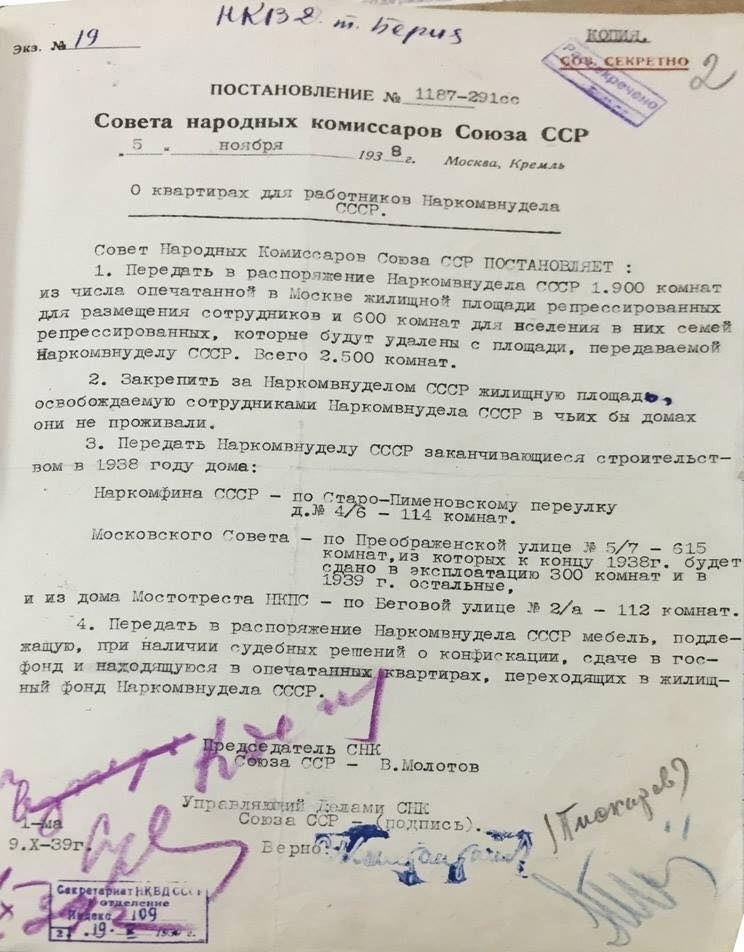 НКВД т. Берия
Экз. № 19
КОПИЯ.
СОВ. СЕКРЕТНО
Рассекречено
2
ПОСТАНОВЛЕНИЕ № 1187-291сс
Совета народных комиссаров Союза ССР
„5„ ноября 1938г. Москва, Кремль
О квартирах для работников Наркомвнудела
СССР.
Совет Народных Комиссаров Союза ССР ПОСТАНОВЛЯЕТ :
1. Передать в распоряжение Наркомвнудела СССР 1.900 комнат
из числа опечатанной в Москве жилищной площади репрессированных
для размещения сотрудников и 600 комнат для вселения в них семей
репрессированных, которые будут удалены с площади, передаваемой
Наркомвнуделу СССР. Всего 2.500 комнат.
2. Закрепить за Наркомвнуделом СССР жилищную площадь,
освобождаемую сотрудниками Наркомвнудела СССР в чьих бы домах
они не проживали.
3. Передать Наркомвнуделу СССР заканчивающиеся строительст-
вом в 1938 году дома:
Наркомфина СССР – по Старо-Пименовскому переулку
д.№ 4/6 – 114 комнат.
Московского Совета – по Преображенской улице № 5/7 – 615
комнат,из которых к концу 1938г. будет
сдано в эксплоатацию 300 комнат и в
1939 г. остальные,
и из дома Мостотреста НКПС – по Беговой улице № 2/а – 112 комнат.
4. Передать в распоряжение Наркомвнудела СССР мебель, подле-
жащую, при наличии судебных решений о конфискации, сдаче в гос-
фонд и находящуюся в опечатанных квартирах, переходящих в жилищ-
ный фонд Наркомвнудела СССР.
Председатель СНК
Союза ССР – В.Молотов
Управляющий Делами СНК
Союза ССР – (подпись).
1-ма
9.X-39г.
Верно:
Секретариат НКВД СССР
отделение
Индекс 109
19